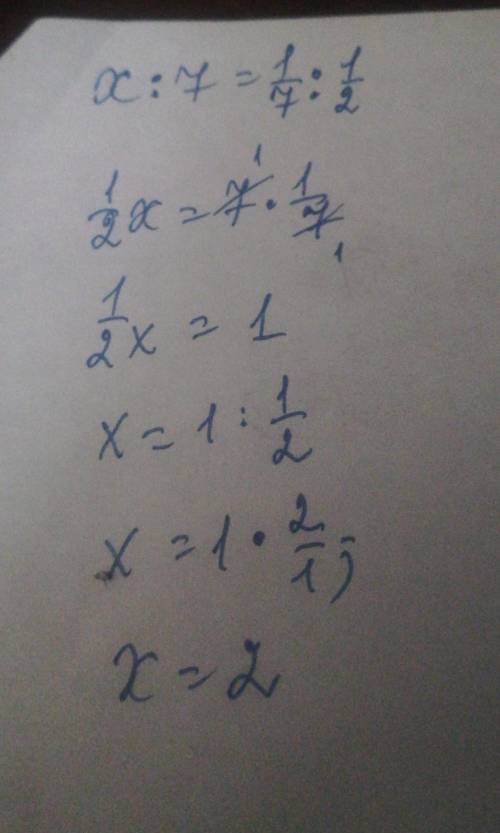 x : 7 = 1/7 : 1/2
1/2 x = 7 1 · 1/7 1
1/2 x = 1
x = 1 : 1/2
x = 1 · 2/1;
x = 2